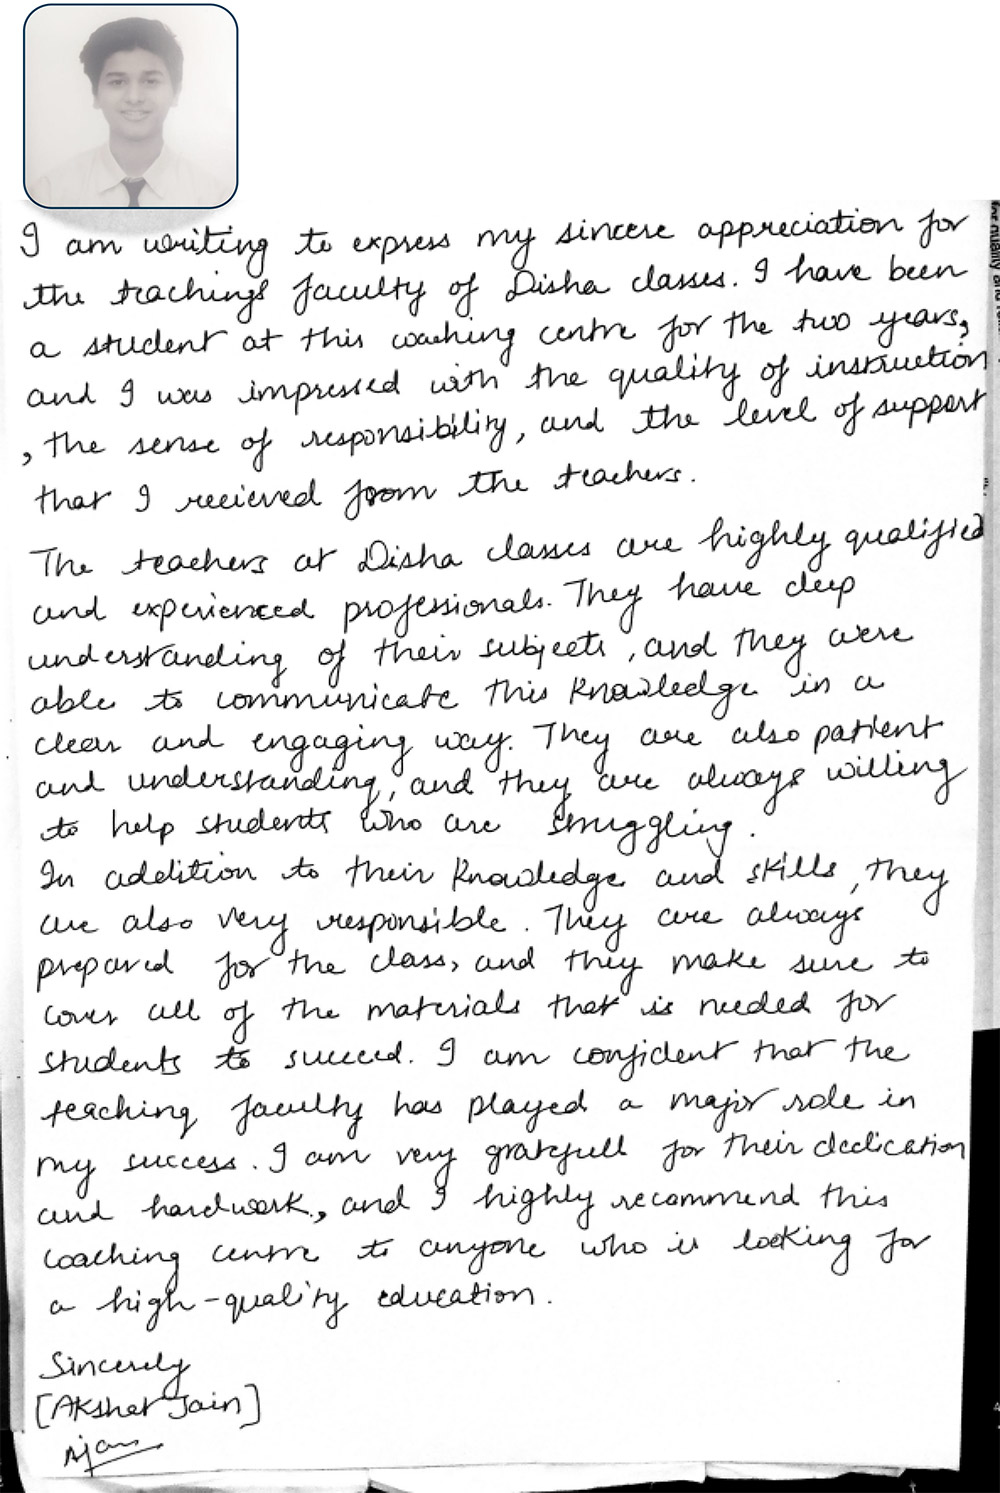 I am writing to express my sincere appreciation for
the teachings faculty of Disha classes. I have been
a student at this coaching centre for the two years,
and I was impressed with the quality of instruction
, the sense of responsibility, and the level of support
that I recieved from the teachers.
The teachers at Disha classes are highly qualified
and experienced professionals. They have deep
understanding of their subjects, and they were
able to communicate this knowledge in a
clear and engaging way. They are also patient
and understanding, and they are always willing
to help students who are struggling.
In addition to their knowledge and skills, they
are also very responsible. They are always
prepared for the class, and they make sure to
cover all of the materials that is needed for
students to succeed. I am confident that the
teaching faculty has played a major role in
my success. I am very gratefull for their dedication
and hardwork, and I highly recommend this
coaching centre to anyone who is looking for
a high-quality education.
Sincerely
[Akshat Jain]
Ajain